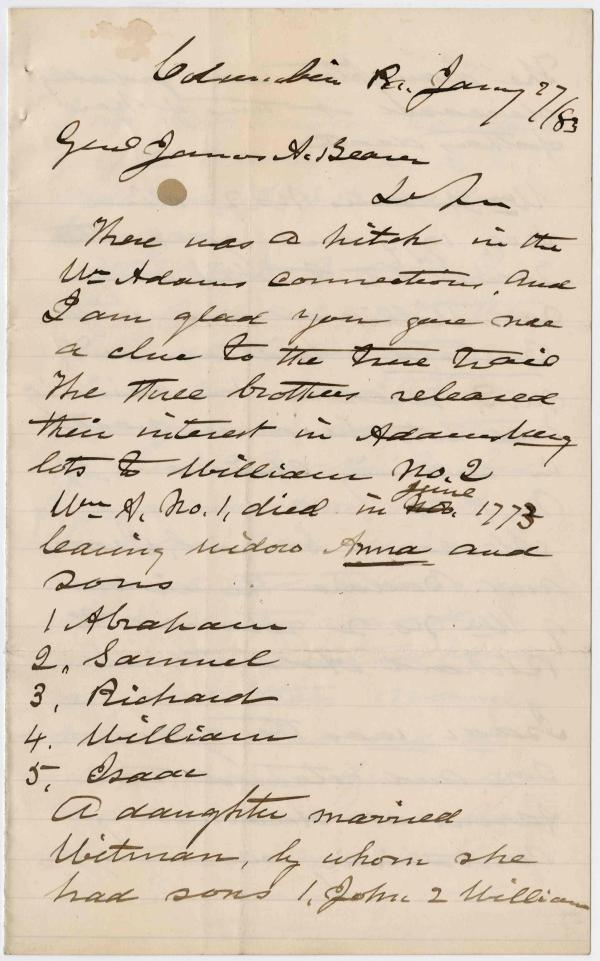 Columbia Pa. Jany 27/83
Genl James A. Beaver
Dr Sir
There was a hitch in the
Wm Adams connections, and
I am glad you gave me
a clue to the true trail
The three brothers released
their interest in Adamsburg
lots to William No. 2
June
Wm A. No. 1, died in 1773
leaving widow Anna and
sons
1 Abraham
2, Samuel
3, Richard
4. William
5, Isaac
A daughter married
Witman, by whom she
had sons 1, John 2 William